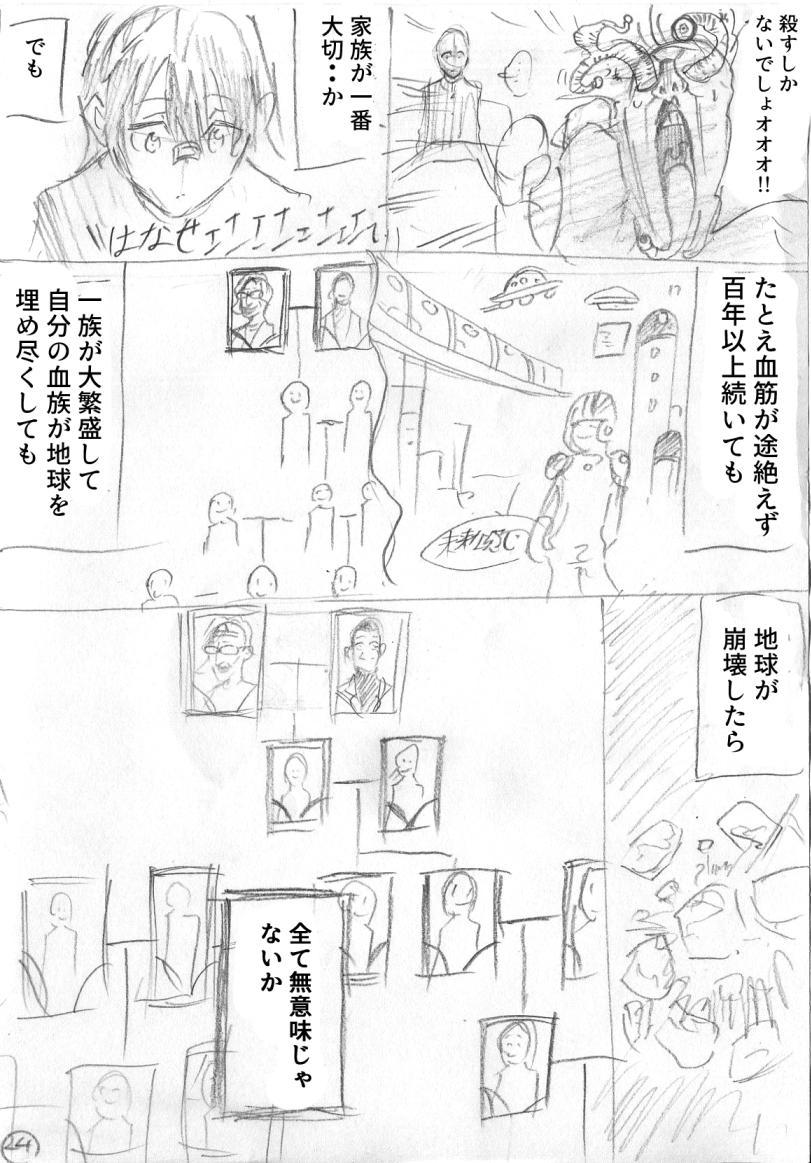 殺すしか
ないでしょオオオ!!
家族が一番
大切・・か
でも
はなせェェェェェェ
たとえ血筋が途絶えず
百年以上続いても
未来感じ
一族が大繁盛して
自分の血族が地球を
埋め尽くしても
地球が
崩壊したら
全て無意味じゃ
ないか
24